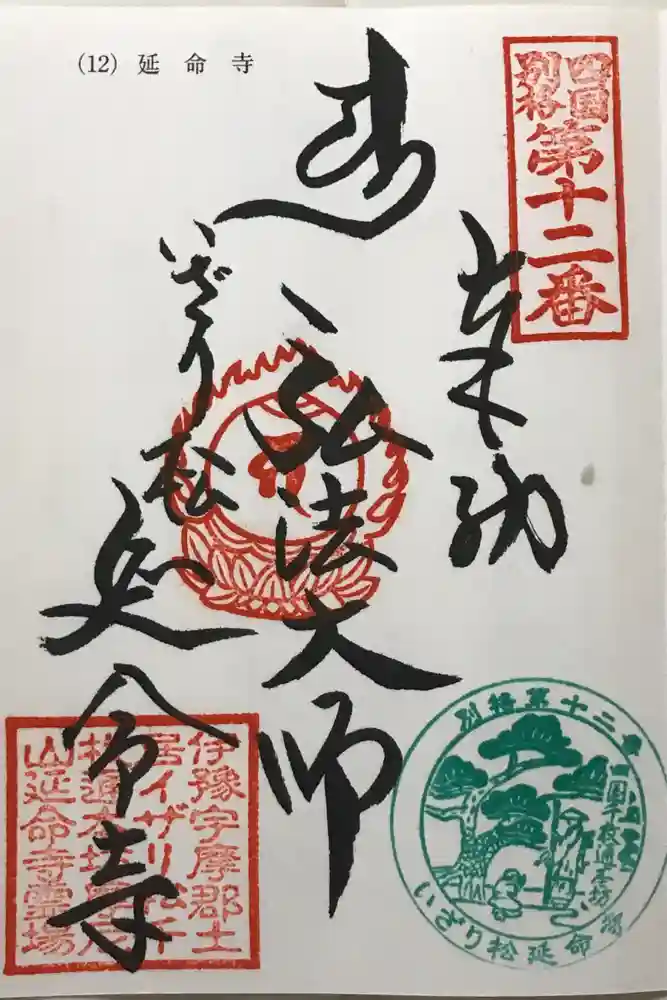 (12) 延命寺
四国
別格
第十二番
奉納
弘法大師
いざり松
延命寺
伊豫宇摩郡土
居イザリ松千
枚通本坊摩尼
山延命寺霊場
別格第十二番
いざり松延命寺